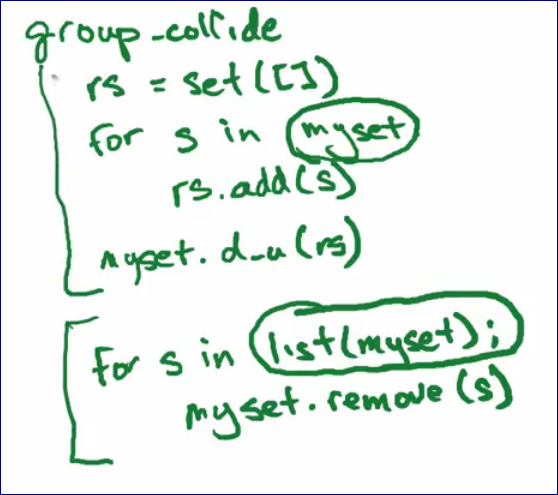 group_collide
rs = set([])
for s in myset
rs.add(s)
myset.d_u(rs)
for s in list(myset);
myset.remove(s)